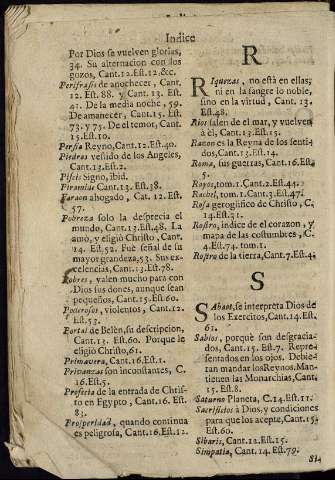 Indice
Por Dios se vuelven glorias,
34. Su alternacion con los
gozos, Cant.12.Est.12.&c.
Perifrasis de anochecer, Cant.
12. Est. 88. y Cant. 13. Est.
41. De la media noche, 59.
De amanecer, Cant. 15. Est.
73. y 75. De el temor, Cant.
15. Est. 10.
Persia Reyno, Cant. 12. Est. 40.
Piedras vestido de los Angeles,
Cant. 13. Est. 2.
Piscis Signo, ibid.
Piramides Cant. 13. Est. 38.
Faraon ahogado, Cat. 12. Est.
57.
Pobreza solo la desprecia el
mundo, Cant. 13. Est. 48. La
amò, y eligiò Christo, Cant.
14. Est. 52. Fuè señal de su
mayor grandeza, 53. Sus ex-
celencias, Cant. 13. Est. 78.
Pobres, valen mucho para con
Dios sus dones, aunque sean
pequeños, Cant. 15. Est. 60.
Poderosos, violentos, Cant. 12.
Est. 53.
Portal de Belèn, su descripcion,
Cant. 13. Est. 60. Porque le
eligiò Christo, 61.
Primavera, Cant. 16. Est. 1.
Privanzas son inconstantes, C.
16. Est. 5.
Profecia de la entrada de Chris-
to en Egypto, Cant. 16. Est.
83.
Prosperidad, quando continua
es peligrosa, Cant. 16. Est. 12.
R
Riquezas, no està en ellas,
ni en la sangre lo noble,
sino en la virtud, Cant. 13.
Est. 48.
Rios salen de el mar, y vuelven
à èl, Cant. 13. Est. 15.
Razon es la Reyna de los senti-
dos, Cant. 13. Est. 14.
Roma, sus guerras, Cant. 16. Est.
5.
Rayos, tom. 1. Cant. 2. Est. 44.
Rachèl, tom. 1. Cant. 3. Est. 47.
Rosa geroglifico de Christo, C.
14. Est. 31.
Rostro, indice de el corazon, y
mapa de las costumbres, C.
4. Est. 74. tom. 1.
Rostro de la tierra, Cant. 7. Est. 4.
S
Sabaot, se interpreta Dios de
los Exercitos, Cant. 14. Est.
62.
Sabios, porquè son desgracia-
dos, Cant. 15. Est. 7. Repre-
sentados en los ojos. Debie-
tan mandar los Reynos. Man-
tienen las Monarchias, Cant.
15. Est. 8.
Saturno Planeta, C. 14. Est. 11.
Sacrificios à Dios, y condiciones
para que los acepte, Cant. 15.
Est. 60.
Sibaris, Cant. 12. Est. 15.
Simpatia, Cant. 14. Est. 79.